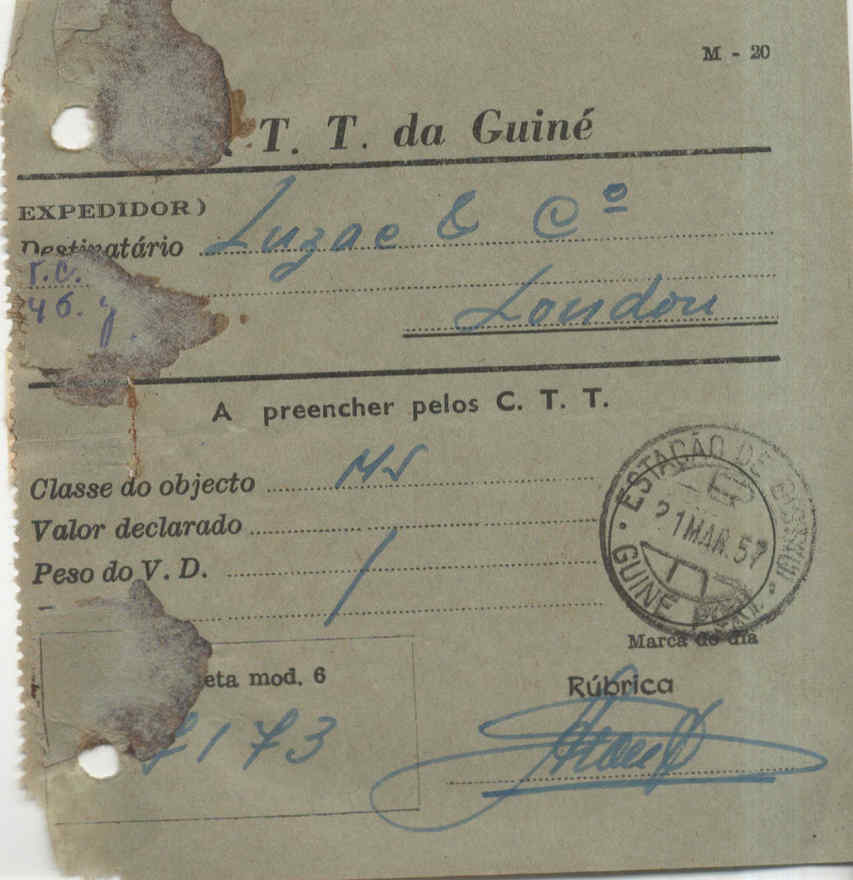 M - 20
. T. T. da Guiné
EXPEDIDOR)
Destinatário Luzac & Cº
London
A preencher pelos C. T. T.
Classe do objecto MS
Valor declarado
Peso do V. D.
ESTAÇÃO DE
21 MAR. 57
GUINÉ
Marca do dia
eta mod. 6
7173
Rúbrica